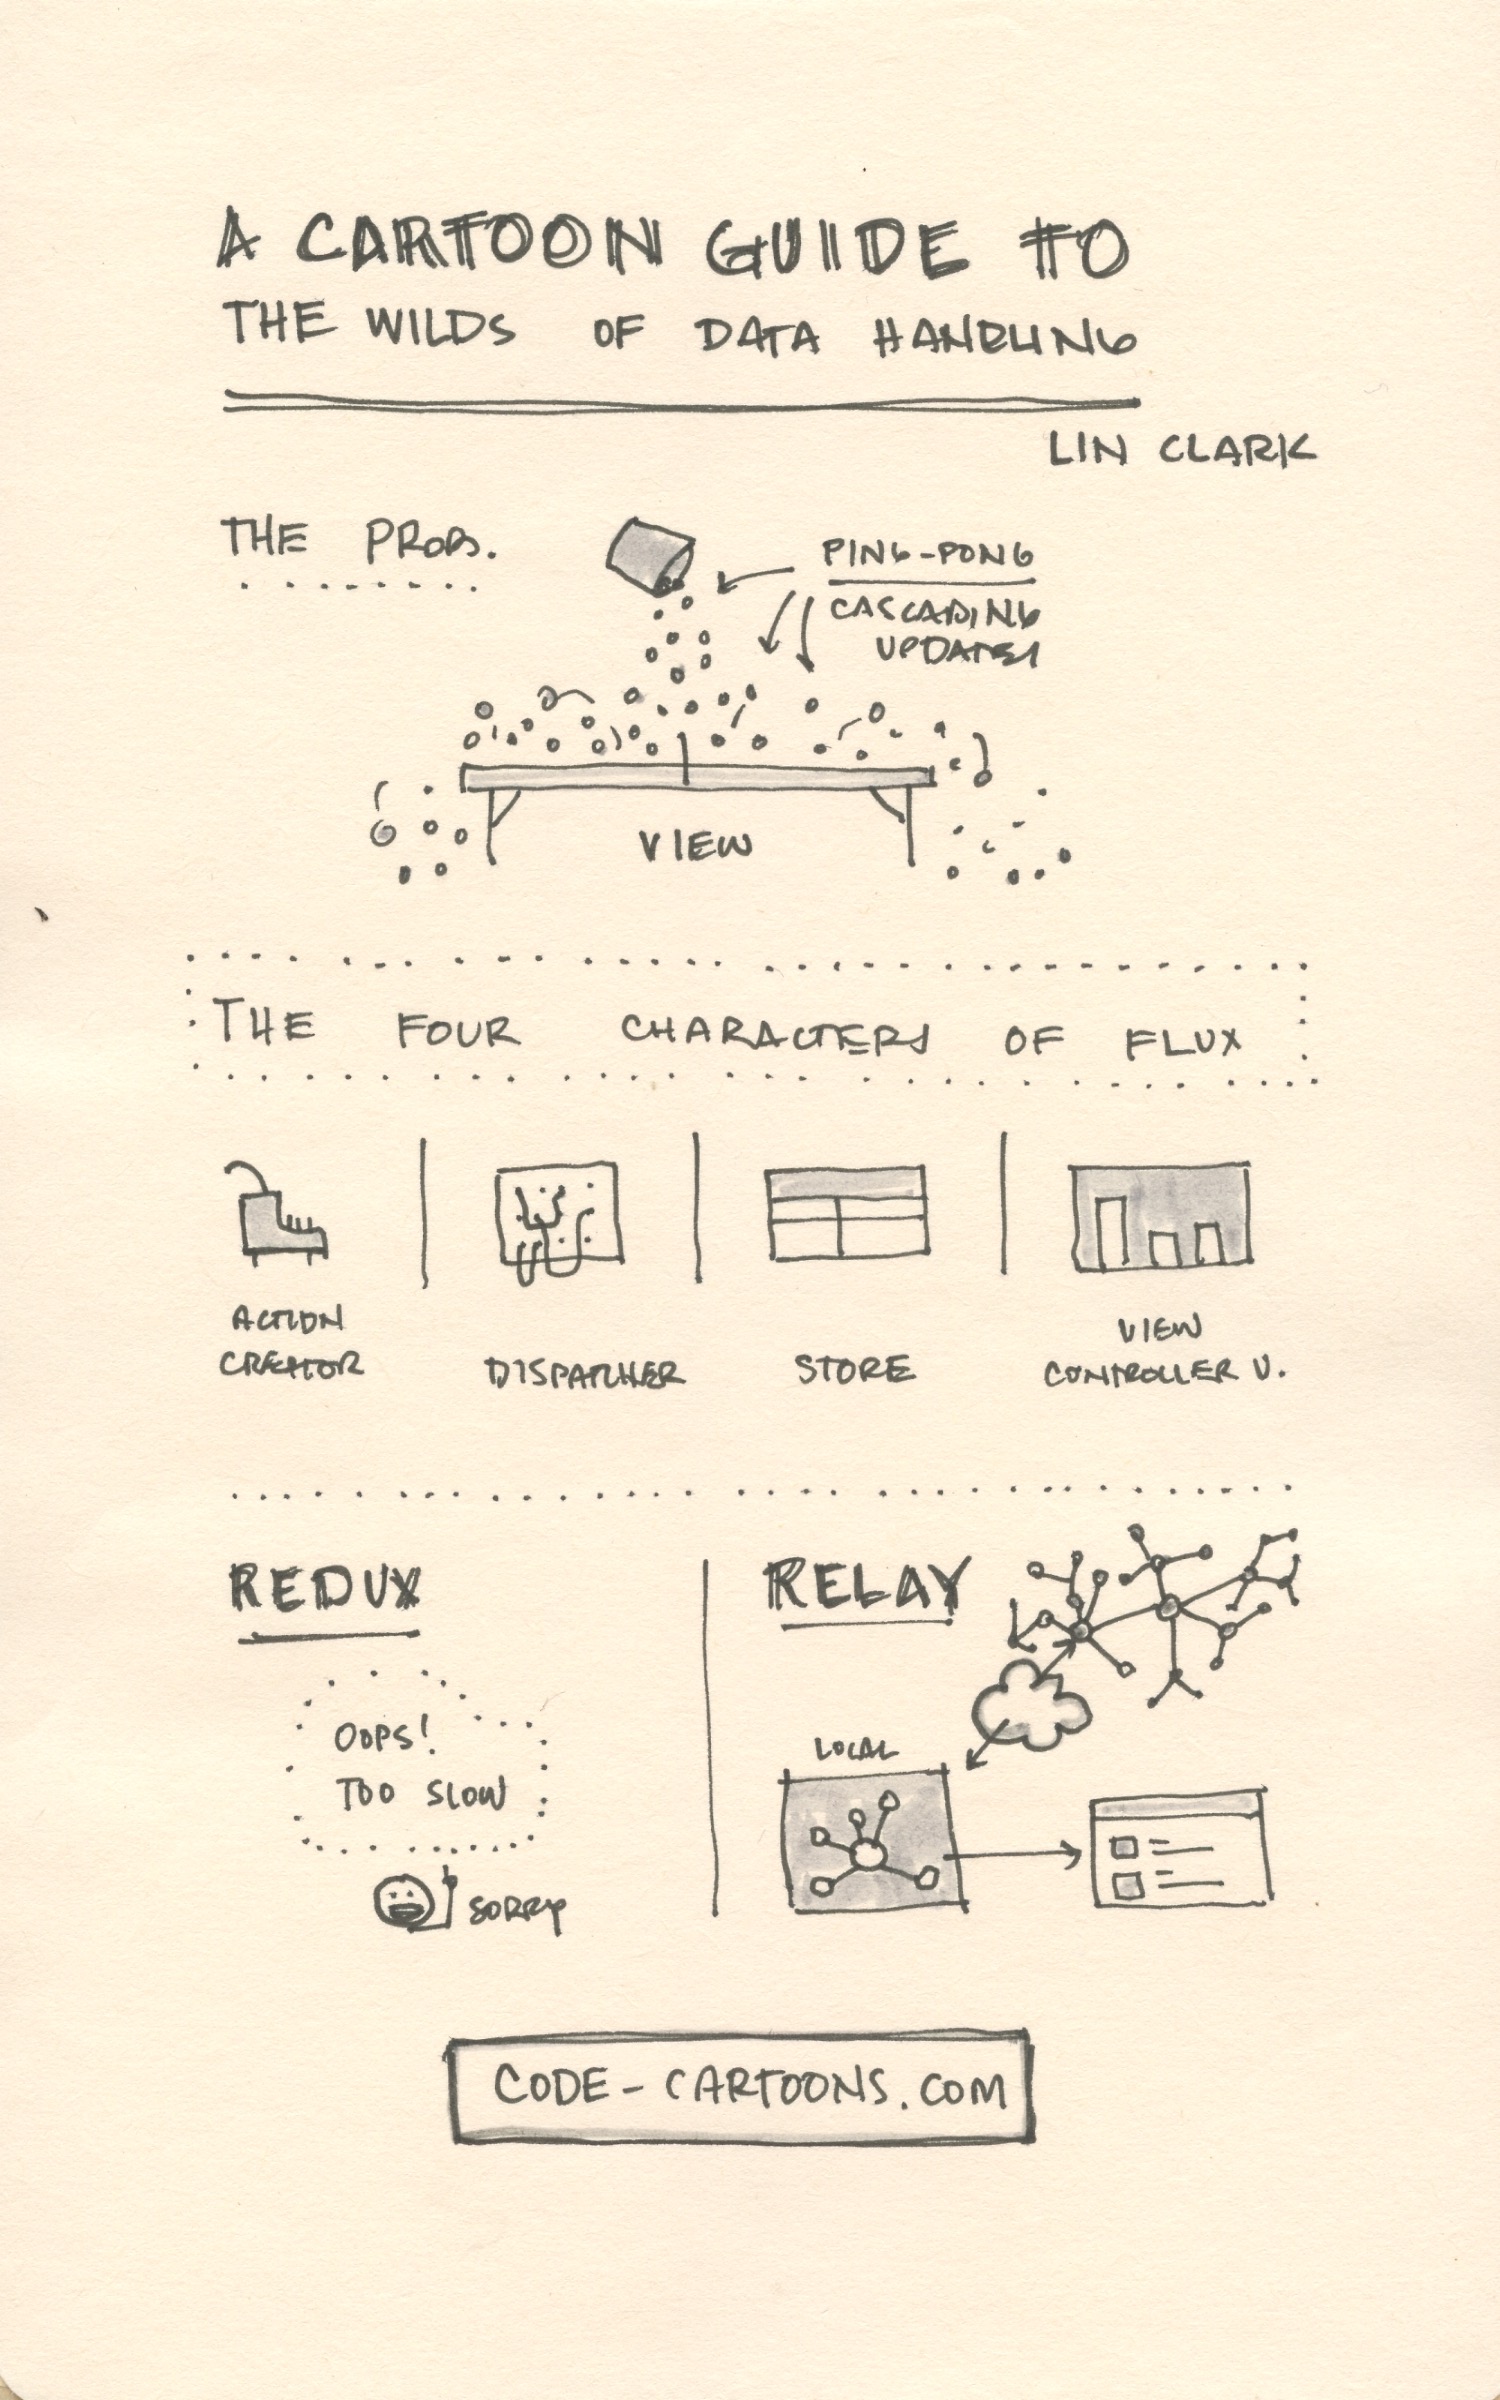 A CARTOON GUIDE TO
THE WILDS OF DATA HANDLING
LIN CLARK
THE PROB.
PING-PONG
CASCADING
UPDATES
VIEW
THE FOUR CHARACTERS OF FLUX
ACTION
CREATOR
DISPATCHER
STORE
VIEW
CONTROLLER V.
REDUX
OOPS!
TOO SLOW
SORRY
RELAY
LOCAL
CODE-CARTOONS.COM